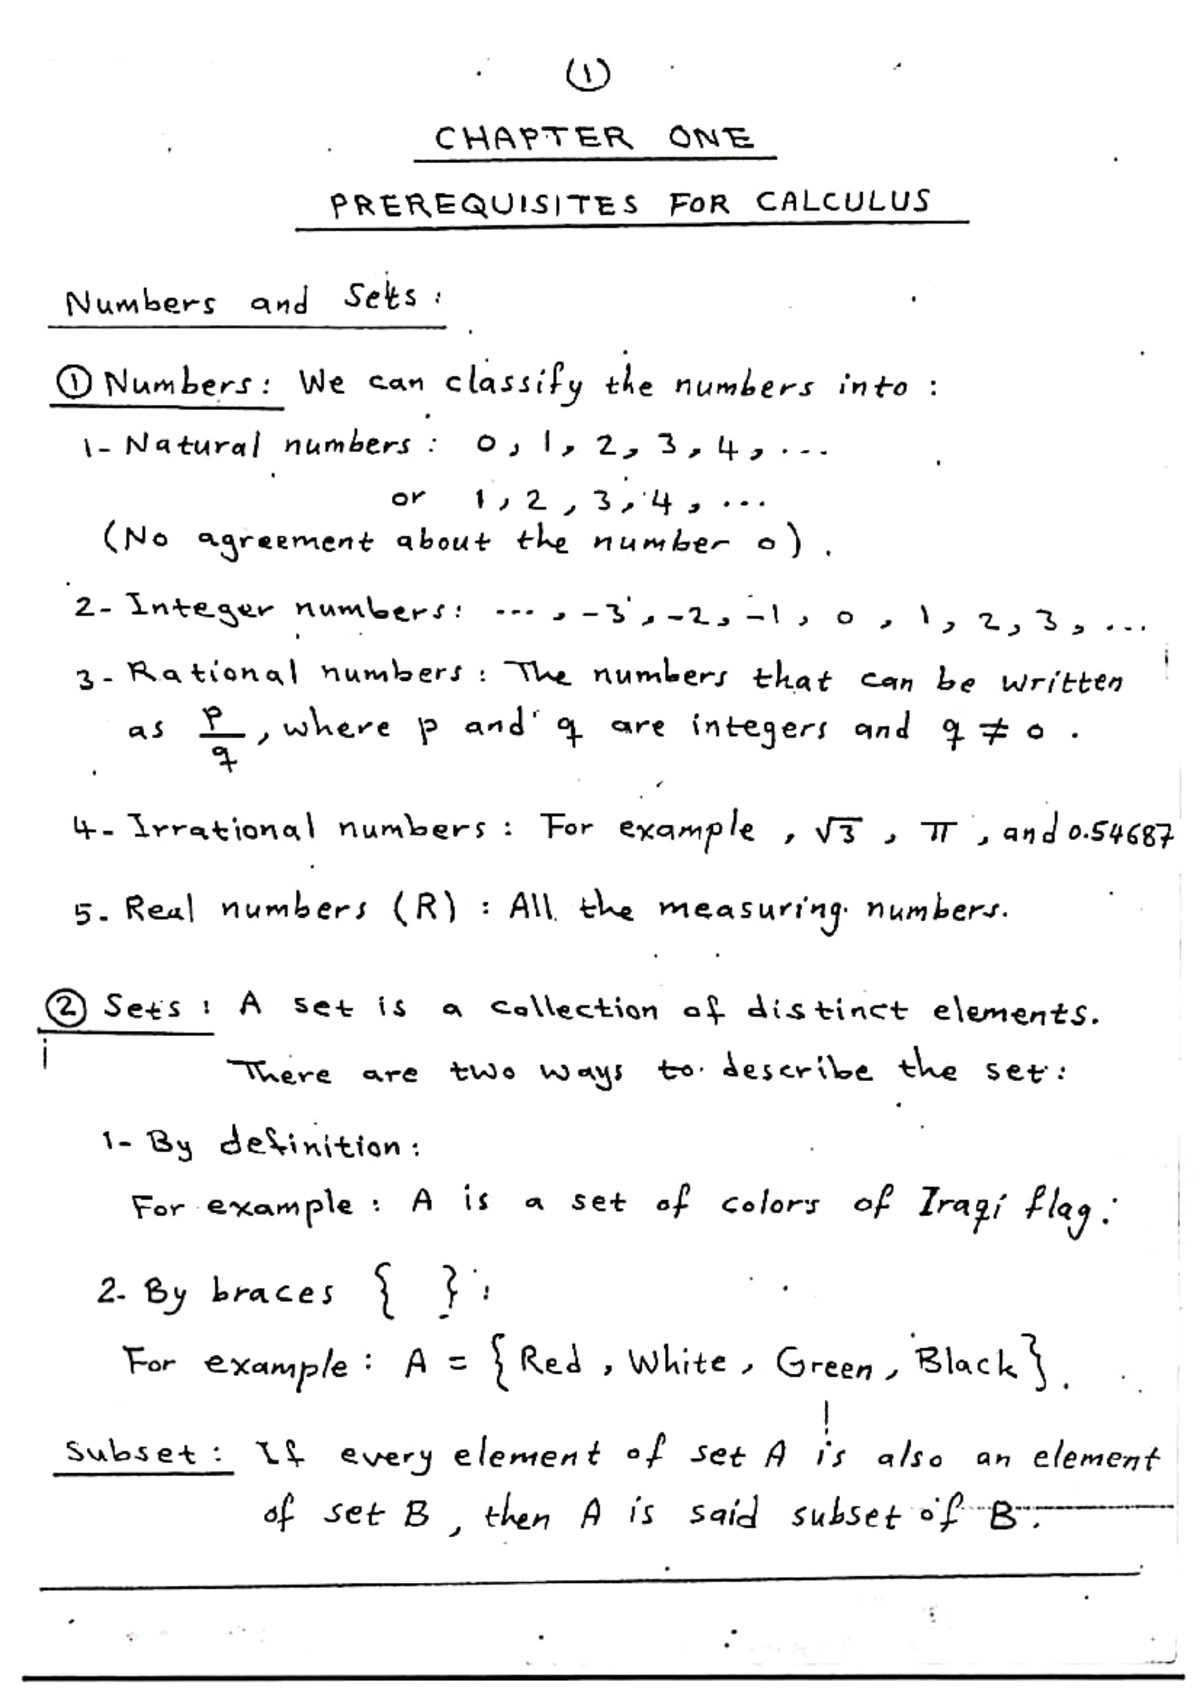 (1)
CHAPTER ONE
PREREQUISITES FOR CALCULUS
Numbers and Sets:
① Numbers: We can classify the numbers into:
1- Natural numbers: 0, 1, 2, 3, 4, ...
or 1, 2, 3, 4, ...
(No agreement about the number 0).
2- Integer numbers: ..., -3, -2, -1, 0, 1, 2, 3, ...
3- Rational numbers: The numbers that can be written
as p/q, where p and q are integers and q ≠ 0.
4- Irrational numbers: For example, √3, π, and 0.54687
5- Real numbers (R): All the measuring numbers.
② Sets: A set is a collection of distinct elements.
There are two ways to describe the set:
1- By definition:
For example: A is a set of colors of Iraqi flag.
2- By braces { }:
For example: A = {Red, White, Green, Black}.
Subset: If every element of set A is also an element
of set B, then A is said subset of B.